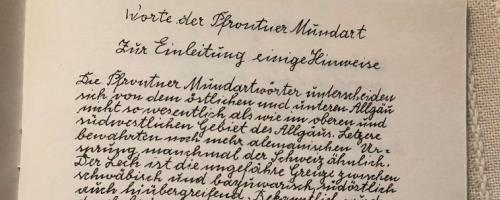 Worte der Pfrontner Mundart
Zur Einleitung einige Hinweise
Die Pfrontner Mundartwörter unterscheiden
sich von dem östlichen und unteren Allgäu
nicht so wesentlich als wie im oberen und
südwestlichen Gebiet des Allgäus. Letzere
bewahrten noch mehr alemanischen Ur-
sprung manchmal der Schweiz ähnlich.
Der Lech ist die ungefähre Grenze zwischen
schwäbisch und bajuwarisch, südöstlich
auch hinübergreifend. Bekanntlich